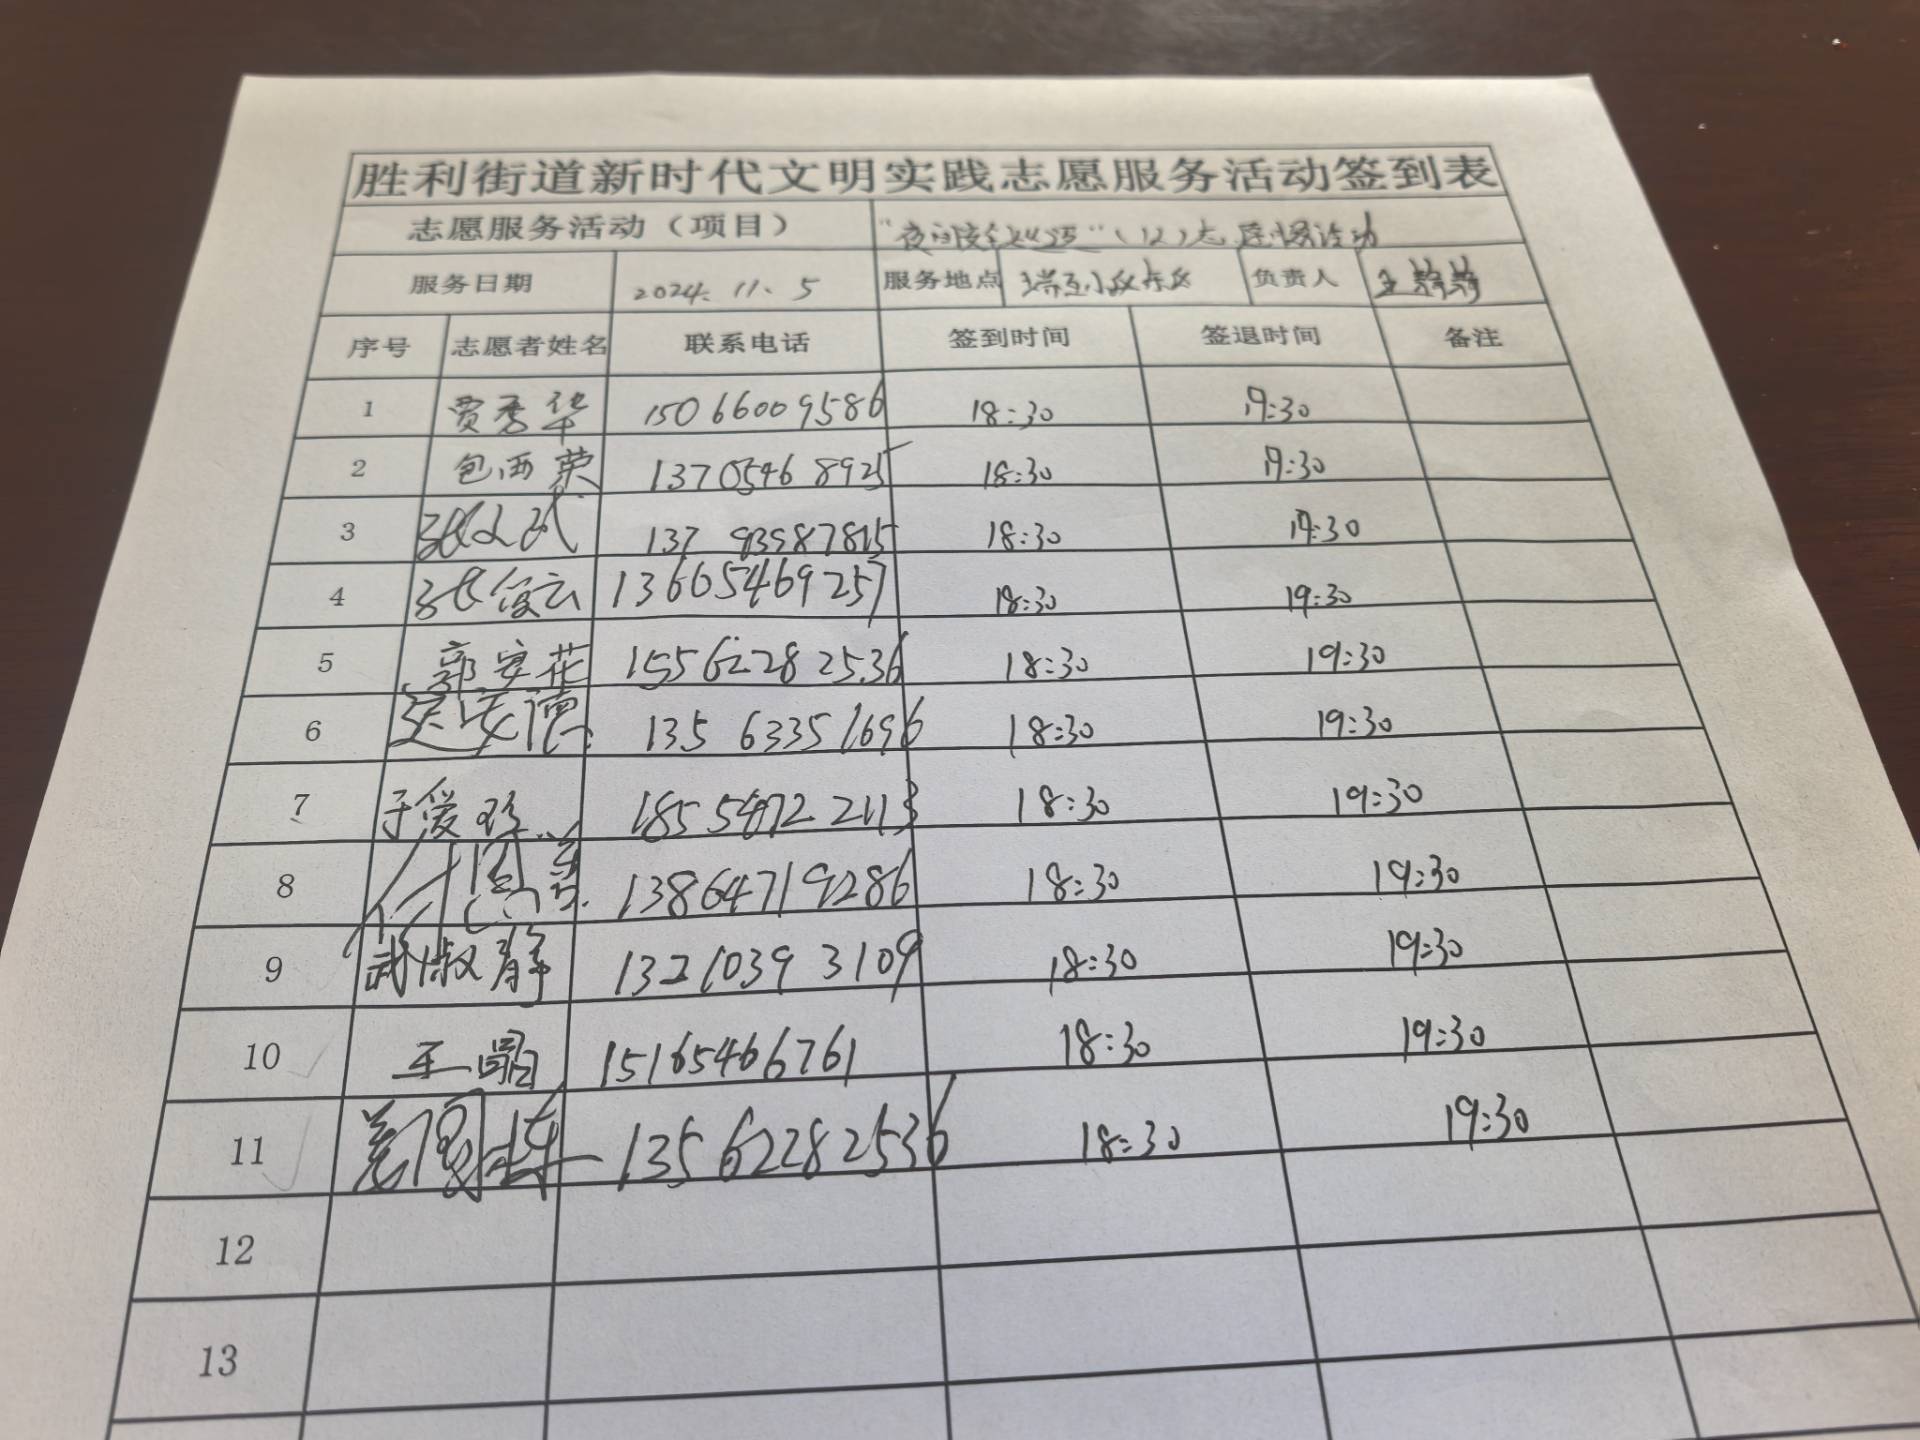 胜利街道新时代文明实践志愿服务活动签到表
志愿服务活动（项目） "夜间安全巡逻"（12）志愿服务活动
服务日期 2024.11.5 服务地点 瑞至小区东区 负责人 王静静
序号 志愿者姓名 联系电话 签到时间 签退时间 备注
1 贾秀华 15066009586 18:30 19:30
2 包西荣 13705468925 18:30 19:30
3 张文武 137 18:30 19:30
4 张俊云 13605469257 18:30 19:30
5 郭安花 15562282536 18:30 19:30
6 13563351696 18:30 19:30
7 于爱珍 18554722113 18:30 19:30
8 13864719286 18:30 19:30
9 武淑静 13210393109 18:30 19:30
10 王 15165466761 18:30 19:30
11 13562282536 18:30 19:30
12
13